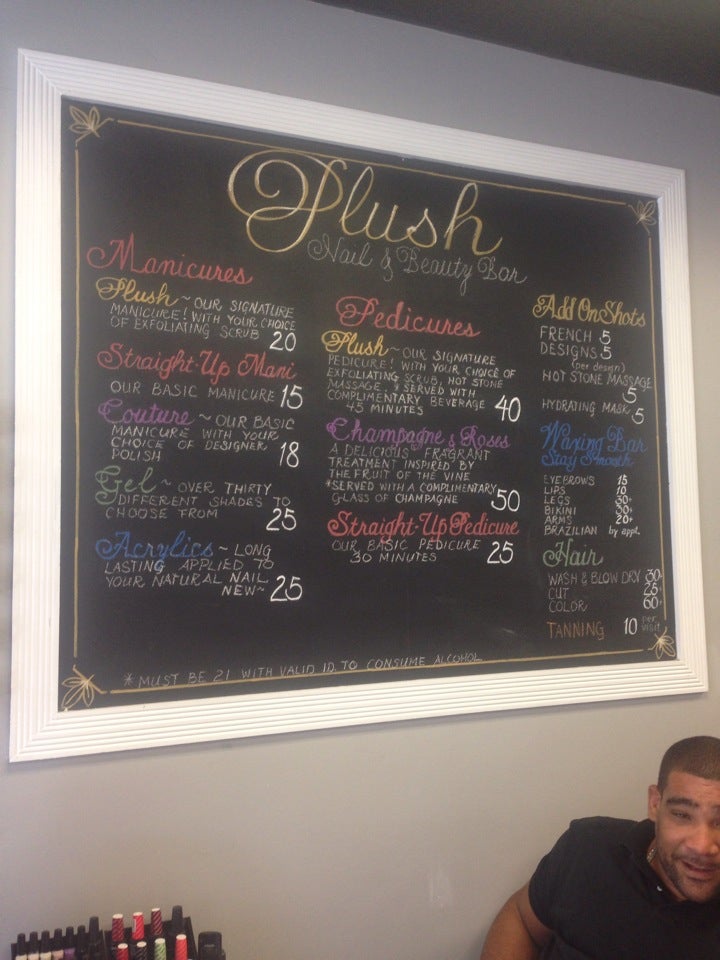 Plush
Nail & Beauty Bar
Manicures
Plush ~ OUR SIGNATURE
MANICURE! WITH YOUR CHOICE
OF EXFOLIATING SCRUB 20
Straight-Up Mani
OUR BASIC MANICURE 15
Couture ~ OUR BASIC
MANICURE WITH YOUR
CHOICE OF DESIGNER
POLISH 18
Gel ~ OVER THIRTY
DIFFERENT SHADES TO
CHOOSE FROM 25
Acrylics ~ LONG
LASTING APPLIED TO
YOUR NATURAL NAIL
NEW~ 25
Pedicures
Plush ~ OUR SIGNATURE
PEDICURE! WITH YOUR CHOICE OF
EXFOLIATING SCRUB, HOT STONE
MASSAGE *SERVED WITH
COMPLIMENTARY BEVERAGE
45 MINUTES 40
Champagne & Roses
A DELICIOUS FRAGRANT
TREATMENT INSPIRED BY
THE FRUIT OF THE VINE
*SERVED WITH A COMPLIMENTARY
GLASS OF CHAMPAGNE 50
Straight-Up Pedicure
OUR BASIC PEDICURE
30 MINUTES 25
Add On Shots
FRENCH 5
DESIGNS 5
(per design)
HOT STONE MASSAGE
5
HYDRATING MASK 5
Waxing Bar
Stay Smooth
EYEBROWS 15
LIPS 10
LEGS 30+
BIKINI 30+
ARMS 20+
BRAZILIAN by appt.
Hair
WASH & BLOW DRY 30
CUT 25
COLOR 60+
TANNING 10 per visit
* MUST BE 21 WITH VALID ID TO CONSUME ALCOHOL